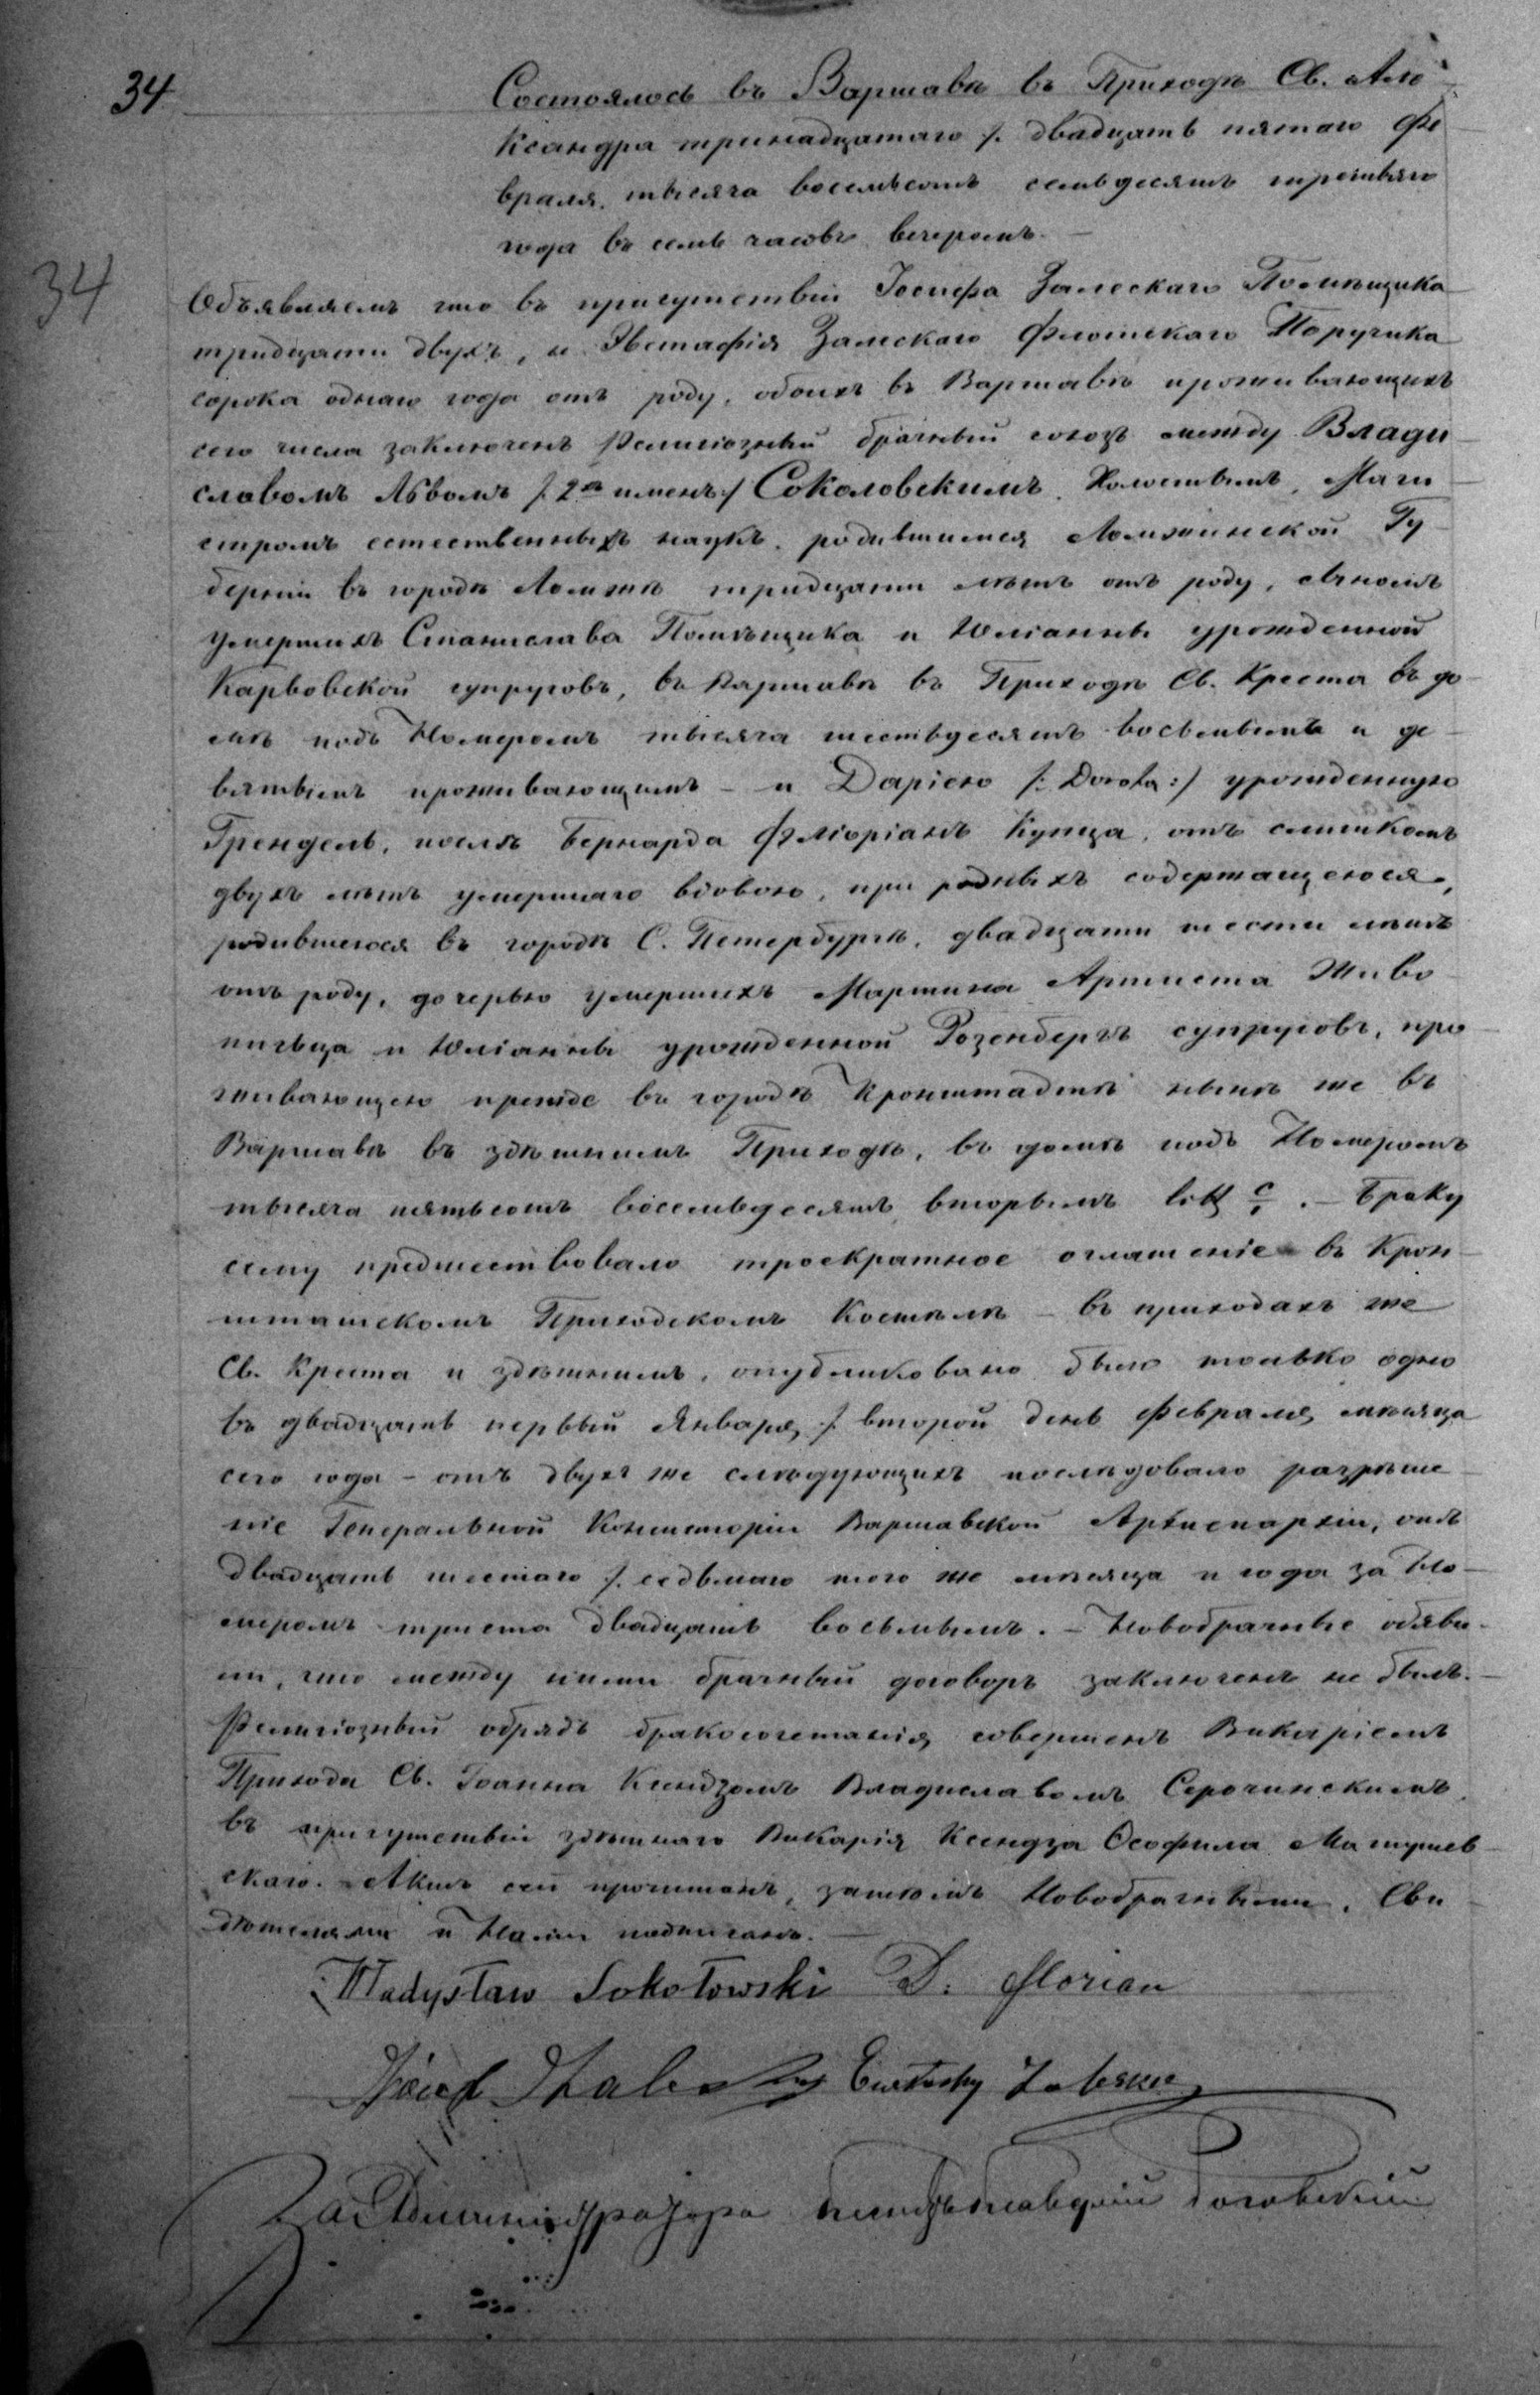 34
Состоялось въ Варшавѣ въ Приходѣ Св. Але
ксандра тринадцатаго /. двадцать пятаго Фе
враля, тысяча восемьсотъ семьдесятъ третьяго
года въ семь часовъ вечеромъ. —
34
Объявляемъ что въ присутствіи Іосифа Залескаго Помѣщика
тридцати двухъ, и Эвстафія Залескаго Флотскаго Поручика
сорока однаго года отъ роду, обоихъ въ Варшавѣ проживающихъ
сего числа заключенъ Религіозный брачный союзъ между Влади
славомъ Львомъ /. 2хъ именъ ./ Соколовскимъ, Холостымъ, Маги
стромъ естественныхъ наукъ, родившимся Ломжинской Гу
берніи въ городѣ Ломжѣ тридцати лѣтъ отъ роду, сыномъ
умершихъ Станислава Помѣщика и Юліанны урожденной
Карвовской супруговъ, въ Варшавѣ въ Приходѣ Св. Креста въ до
мѣ подъ Номеромъ тысяча шестьдесятъ восьмымъ и де
вятымъ проживающимъ – и Даріею /: Dorota :/ урожденную
Грендель, послѣ Бернарда Флоріанъ Купца, отъ слишкомъ
двухъ лѣтъ умершаго вдовою, при родныхъ содержащеюся,
родившеюся въ городѣ С. Петербургѣ, двадцати шести лѣтъ
отъ роду, дочерью умершихъ Мартина Артиста Живо
писца и Юліанны урожденной Розенбергъ супруговъ, про
живающею прежде въ городѣ Кронштадтѣ нынѣ же въ
Варшавѣ въ здѣшнимъ Приходѣ, въ домѣ подъ Номеромъ
тысяча пятьсотъ восемьдесятъ вторымъ litt c. – Браку
сему предшествовало троекратное оглашеніе въ Крон
штатскомъ Приходскомъ Костелѣ – въ приходахъ же
Св. Креста и здѣшнимъ, опубликовано было только одно
въ двадцать первый Января /. второй день Февраля мѣсяца
сего года – отъ двухъ же слѣдующихъ послѣдовало разрѣше
ніе Генеральной Консисторіи Варшавской Архіепархіи, отъ
двадцать шестаго /. седьмаго того же мѣсяца и года за Но
меромъ триста двадцать восьмымъ. – Новобрачные объяви
ли, что между ними брачный договоръ заключенъ не былъ. –
Религіозный обрядъ бракосочетанія совершенъ Викаріемъ
Прихода Св. Іоанна Ксендзомъ Владиславомъ Серочинскимъ,
въ присутствіи здѣшнаго Викарія Ксендза Ѳеофила Матушев
скаго. – Актъ сей прочитанъ, затѣмъ Новобрачными, Сви
дѣтелями и Нами подписанъ. —
Władysław Sokołowski D. Florian
Józef Zaleski Eustachy Zaleski
За Администратора